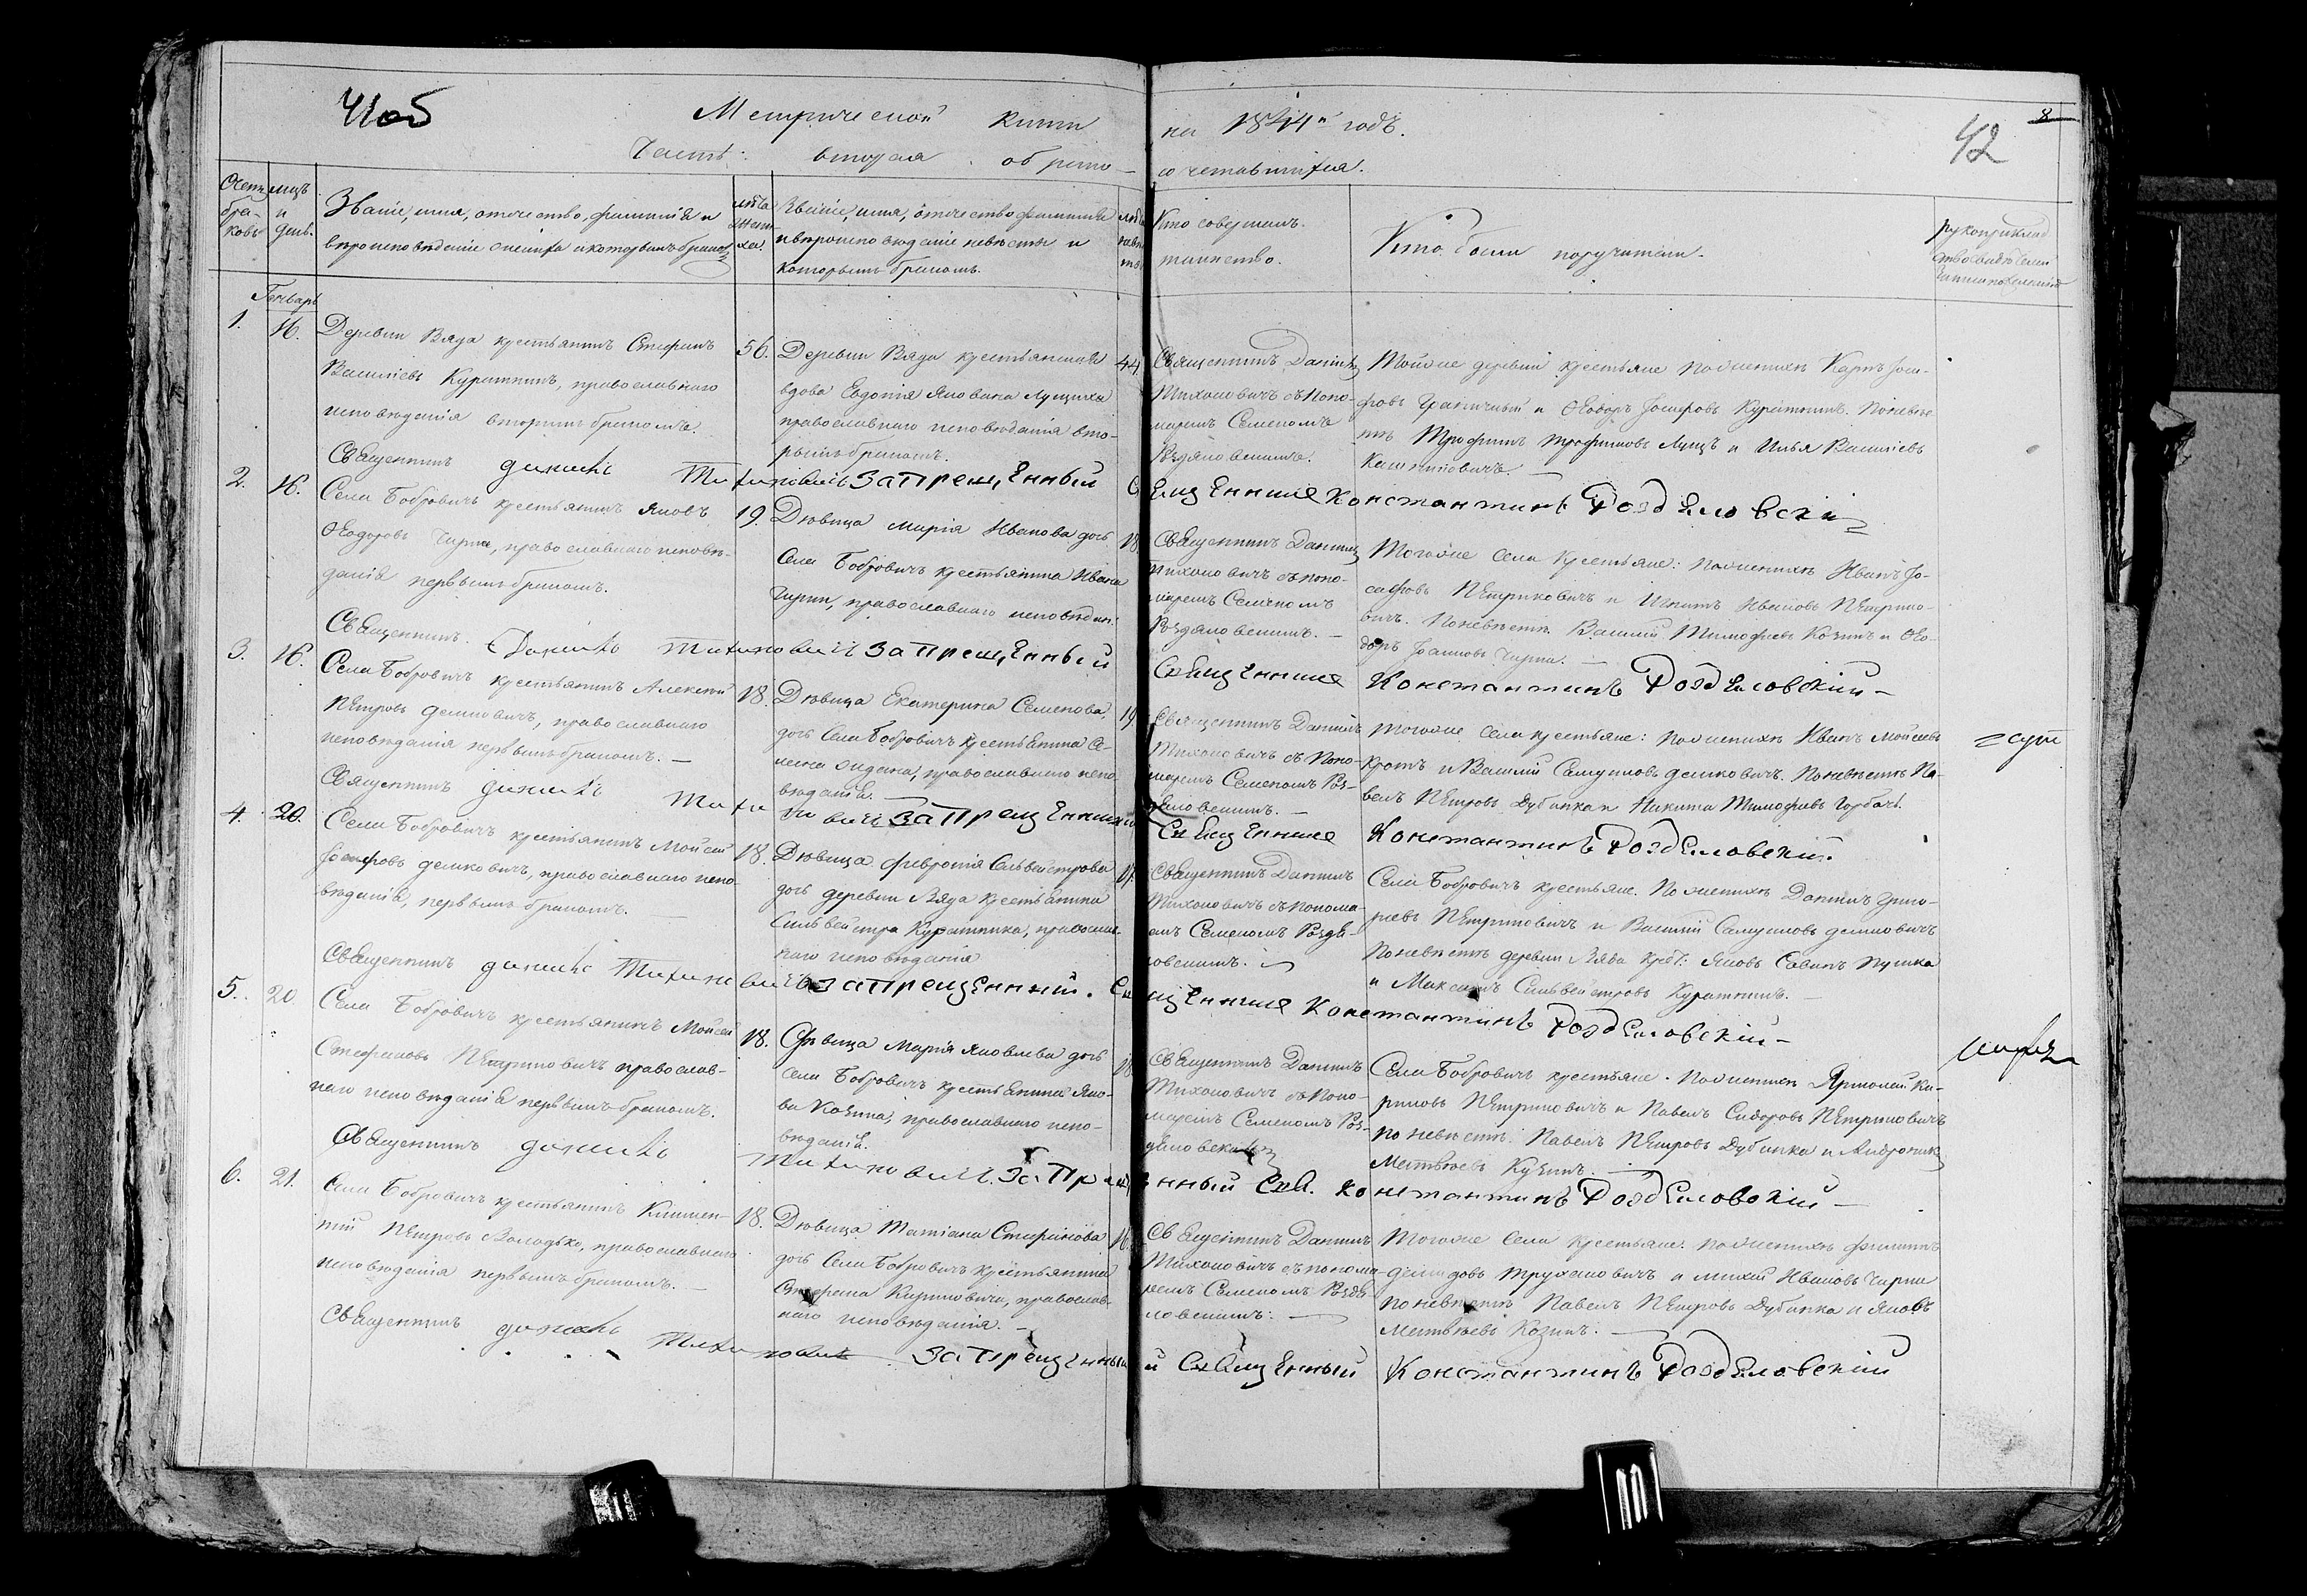 41об
Метрической книги
на 1844й годъ.
42
8
Часть вторая о бракосочетавшихся.
Счетъ браковъ
мцъ и день.
Званіе, имя, отчество, фамилія и
вѣроисповѣданіе жениха и которымъ бракомъ
лѣта жениха.
Званіе, имя, отчество фамилія
и вѣроисповѣданіе невѣсты и
которымъ бракомъ.
лѣта невѣсты
Кто совершалъ
таинство.
Кто были поручители.
рукоприклад
ство свидѣтелей
Генварь
1.
16.
Деревни Вяда крестьянинъ Стефанъ
Васильевъ Куратникъ, православнаго
исповѣданія вторымъ бракомъ.
56.
Деревни Вяда крестьянская
вдова Евдокія Яковова Лущиха
православнаго исповѣданія вто-
рымъ бракомъ.
44.
Священникъ Даніилъ
Тихоновичъ съ поно-
маремъ Семеномъ
Роздяловскимъ.
Тойже деревни крестьяне по женихѣ Карпъ Іоси-
фовъ Граничный и Ѳеодоръ Іосифовъ Куратникъ. По невѣс-
тѣ Трофимъ Трофимовъ Лущъ и Илья Васильевъ
Священникъ Данилъ Тихоновичъ Запрещенный Священникъ Константинъ Роздѣловскій
2.
16.
Села Бобровичъ крестьянинъ Яковъ
Ѳеодоровъ Чирпа, православнаго исповѣ-
данія первымъ бракомъ.
19.
Дѣвица Марія Иванова дочь
Села Бобровичъ крестьянина Ивана
Чирпи, православнаго исповѣдан:
18
Священникъ Даніилъ
Тихоновичъ съ поно-
маремъ Семеномъ
Роздяловскимъ. —
Тогоже села крестьяне: по женихѣ Иванъ Іо-
сифовъ Петриковичъ и Игнатъ Ивановъ Петрико-
вичъ. По невѣстѣ Василій Тимофѣевъ Козикъ и Ѳео-
доръ Іоанновъ Чирпа. —
Священникъ. Данилъ Тихоновичъ Запрещенный Священникъ Константинъ Роздѣловскій —
3.
16.
Села Бобровичъ крестьянинъ Алексѣй
Петровъ Демковичъ, православнаго
исповѣданія первымъ бракомъ. —
18.
Дѣвица Екатерина Семенова,
дочь Села Бобровичъ крестьянина Се-
мена Жидана, православнаго испо-
вѣданія.
19.
Священникъ Даніилъ
Тихоновичъ съ поно-
маремъ Семеномъ Роз-
дяловскимъ. —
Тогоже села крестьяне: по женихѣ Иванъ Мойсеевъ
Кротъ и Василій Самуиловъ Демковичъ. По невѣстѣ Па-
велъ Петровъ Дубинка и Никита Тимофѣевъ Горбачъ.
Священникъ Данилъ Тихоновичъ Запрещенный Священникъ Константинъ Роздѣловскій.
4.
20.
Села Бобровичъ крестьянинъ Мойсей
Іосифовъ Демковичъ, православнаго испо-
вѣданія, первымъ бракомъ. —
18.
Дѣвица Февронія Сильвестрова
дочь деревни Вяда крестьянина
Сильвестра Куратника, православ-
наго исповѣданія
17.
Священникъ Даніилъ
Тихоновичъ съ понома-
емъ Семеномъ Роздя-
ловскимъ.
Села Бобровичъ крестьяне. По женихѣ Даніилъ Григо-
рьевъ Петриковичъ и Василій Самуиловъ Демковичъ
По невѣстѣ деревни Вяда крест: Яковъ Савинъ Пушка
и Максимъ Сильвестровъ Куратникъ. —
Священникъ Данилъ Тихоновичъ Запрещенный. Священникъ Константинъ Роздѣловскій —
5.
20.
Села Бобровичъ крестьянинъ Мойсей
Стефановъ Петриковичъ православ-
наго исповѣданія первымъ бракомъ.
18.
Дѣвица Марія Яковлева дочь
села Бобровичъ крестьянина Яко-
ва Козика, православнаго испо-
вѣданія.
18
Священникъ Даніилъ
Тихоновичъ съ поно-
маремъ Семеномъ Роз-
дяловскимъ
Села Бобровичъ крестьяне. По женихѣ Ярмолай Ки-
риковъ Петриковичъ и Павелъ Сидоровъ Петриковичъ
по невѣстѣ Павелъ Петровъ Дубинка и Андроникъ
Матвѣевъ Кузикъ. —
Священникъ Данилъ Тихоновичъ. Запрещенный Свя. Константинъ Роздѣловскій —
6.
21.
Села Бобровичъ крестьянинъ Климен-
тій Петровъ Володько, православнаго
исповѣданія первымъ бракомъ. —
18.
Дѣвица Татіана Стефанова
дочь Села Бобровичъ крестьянина
Стефана Кириковича, православ-
наго исповѣданія. —
16.
Священникъ Даніилъ
Тихоновичъ съ понома-
ремъ Семеномъ Роздя-
ловскимъ: —
Тогоже Села крестьяне. по женихѣ Филиппъ
Демидовъ Трухановичъ и Михей Ивановъ Чирпа
по невѣстѣ Павелъ Петровъ Дубинка и Яковъ
Матвѣевъ Козикъ. —
Священникъ Данилъ Тихоновичъ Запрещенный Священный Константинъ Роздѣловскій